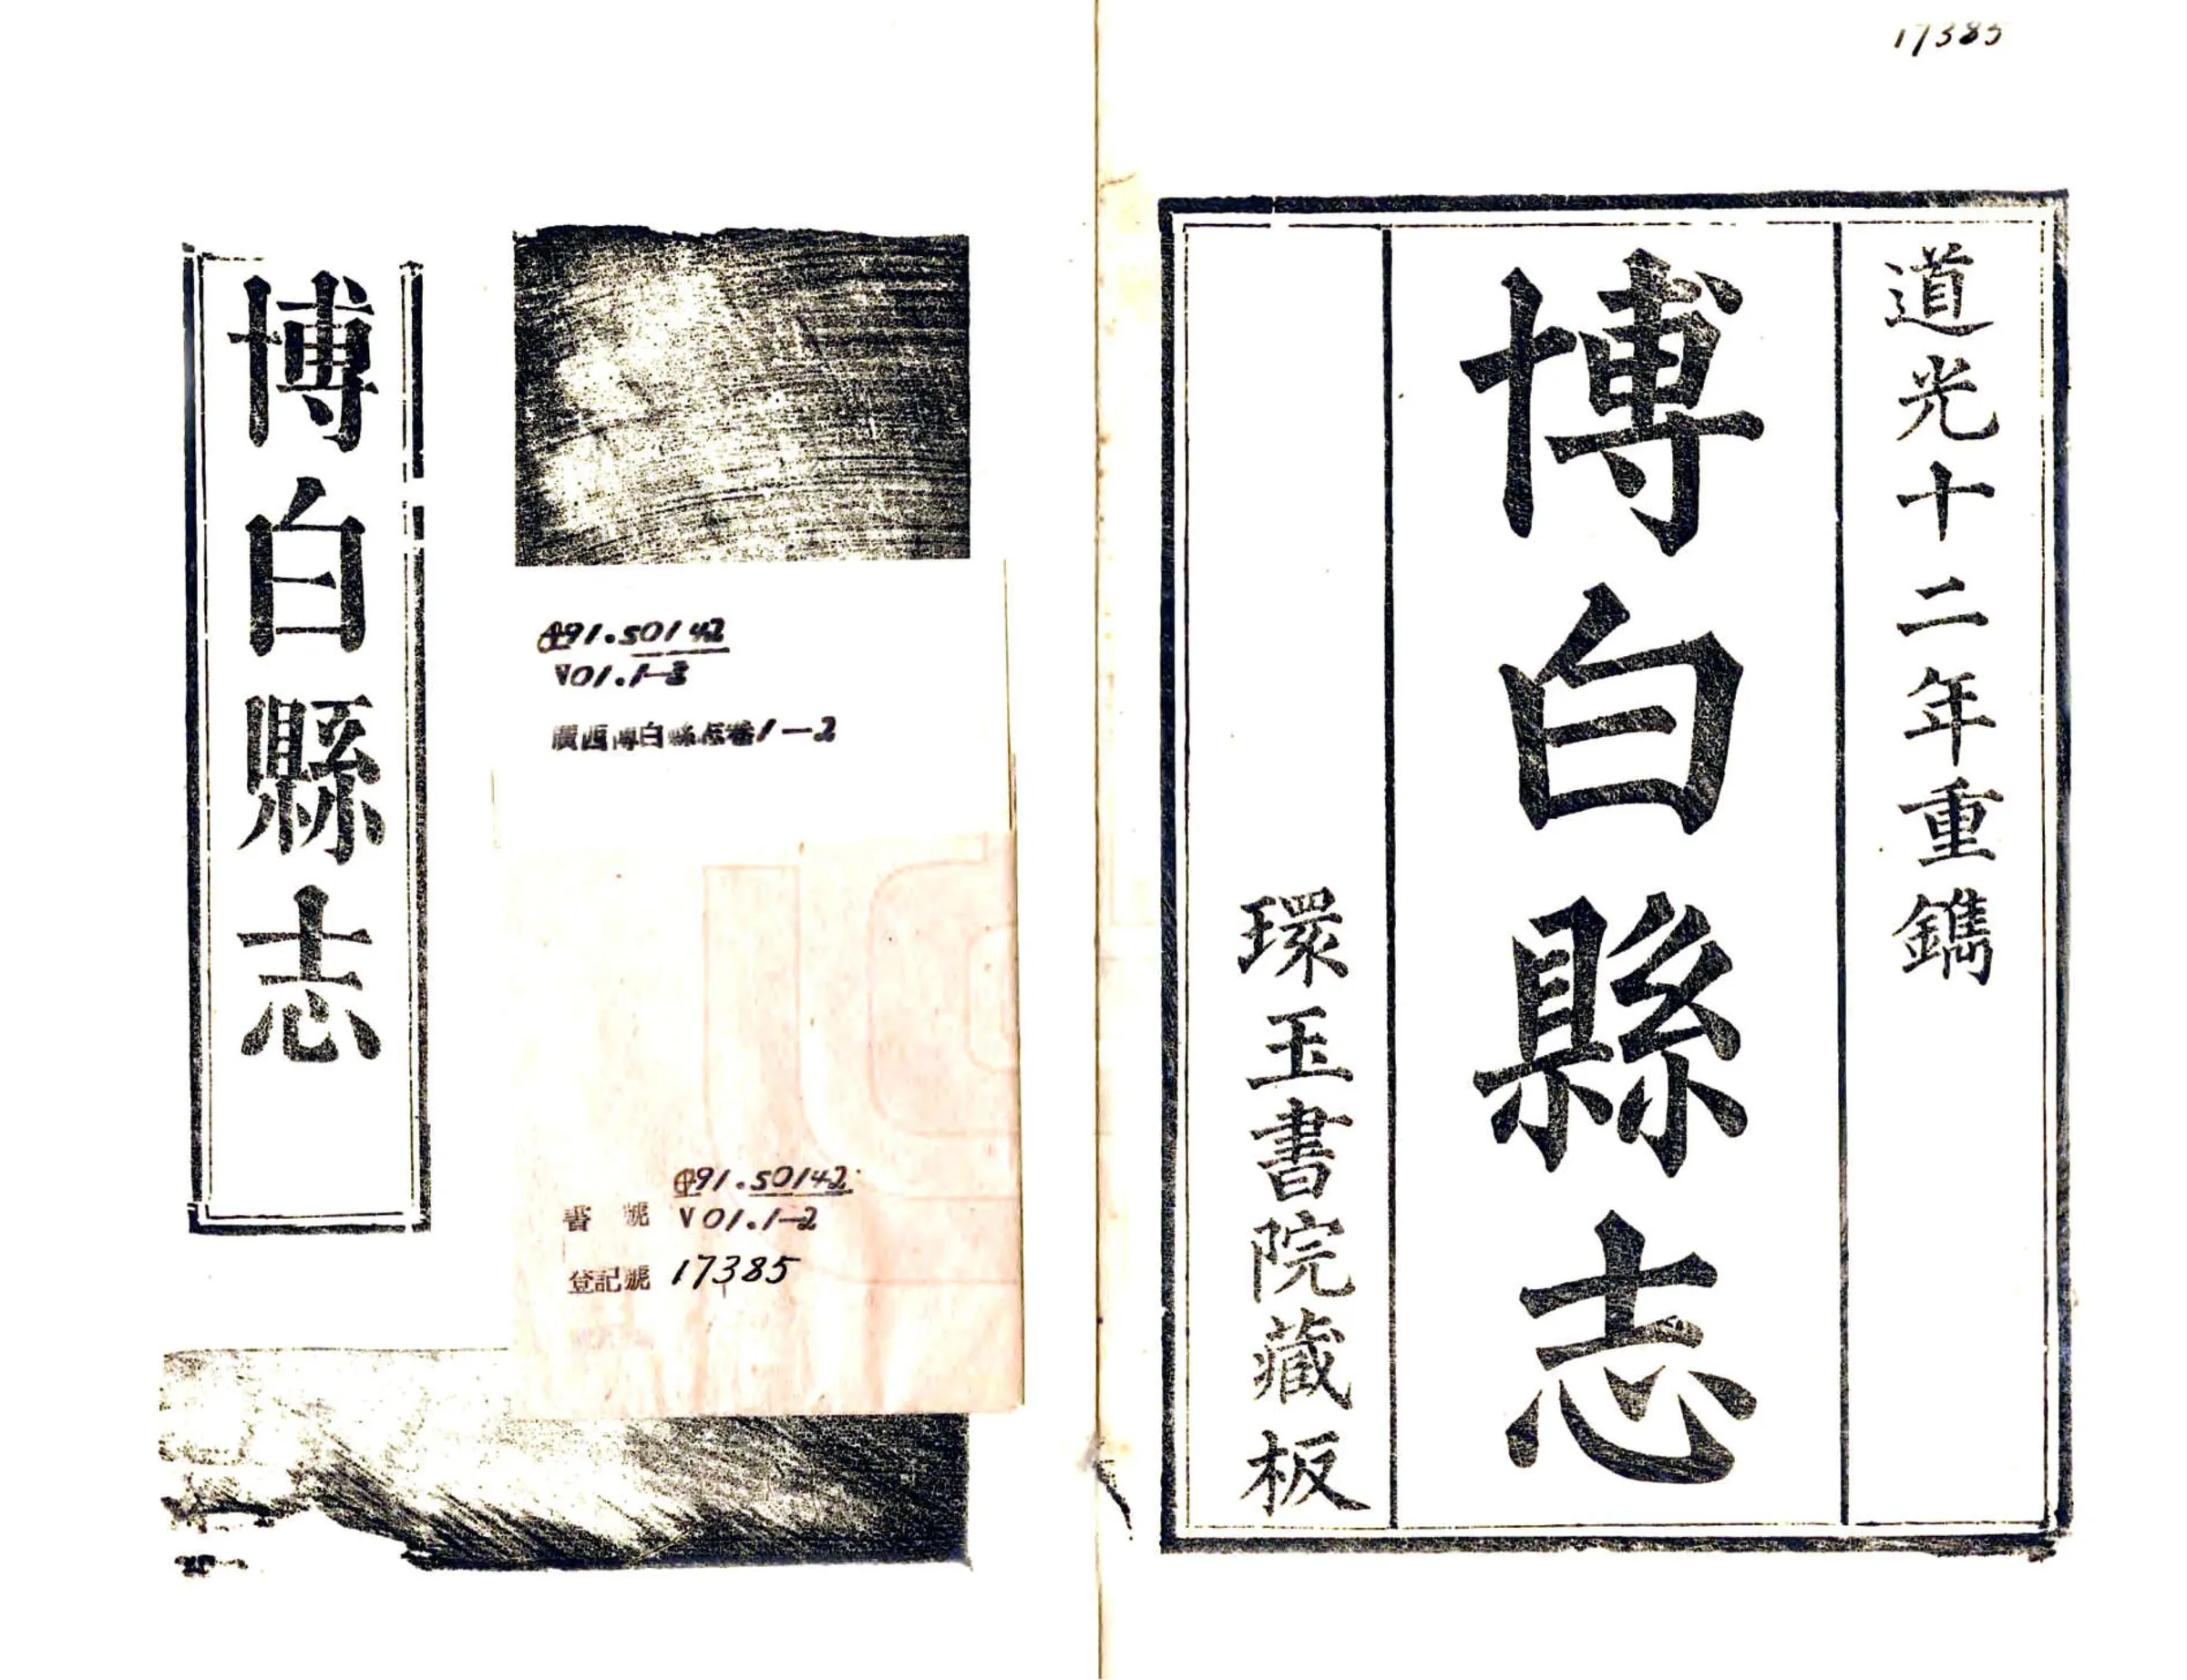 17385
道光十二年重鐫
博白縣志
環玉書院藏板
博白縣志
491.50142
V01.1-2
廣西博白縣志卷1-2
書號 491.50142
V01.1-2
登記號 17385